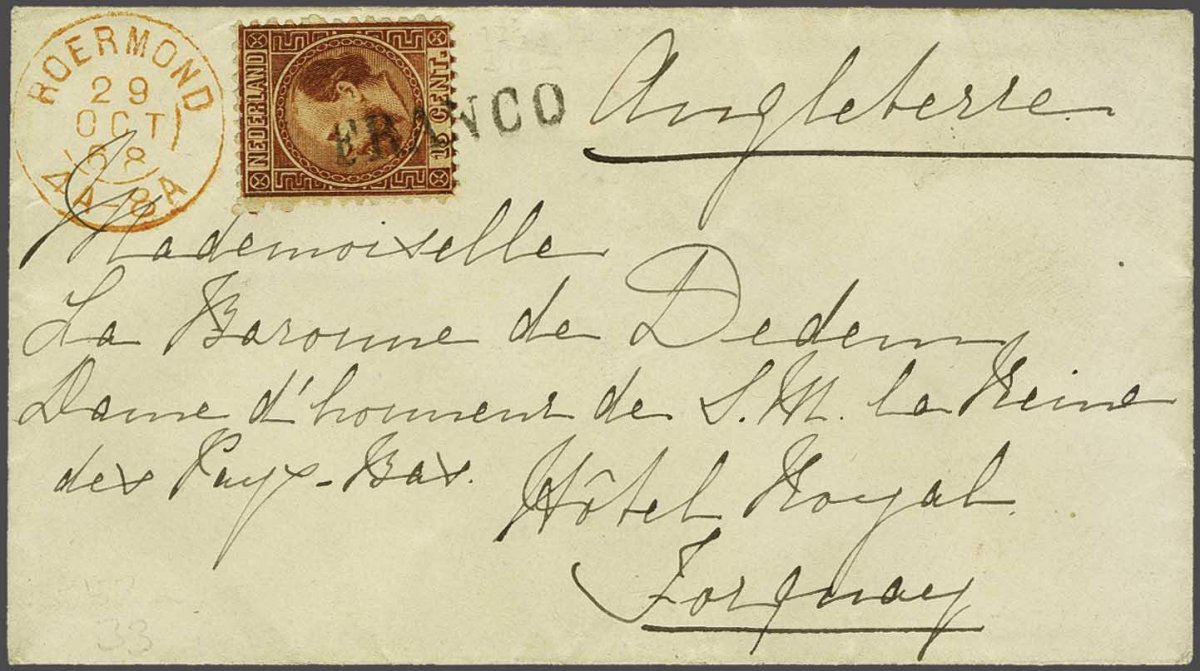 ROERMOND
29
OCT
68
4A-8A
NEDERLAND
15 CENT.
FRANCO
Angleterre
Mademoiselle
La Baronne de Dedem
Dame d'honneur de S. M. la Reine
des Pays-Bas.
Hôtel Royal.
Torquay
33